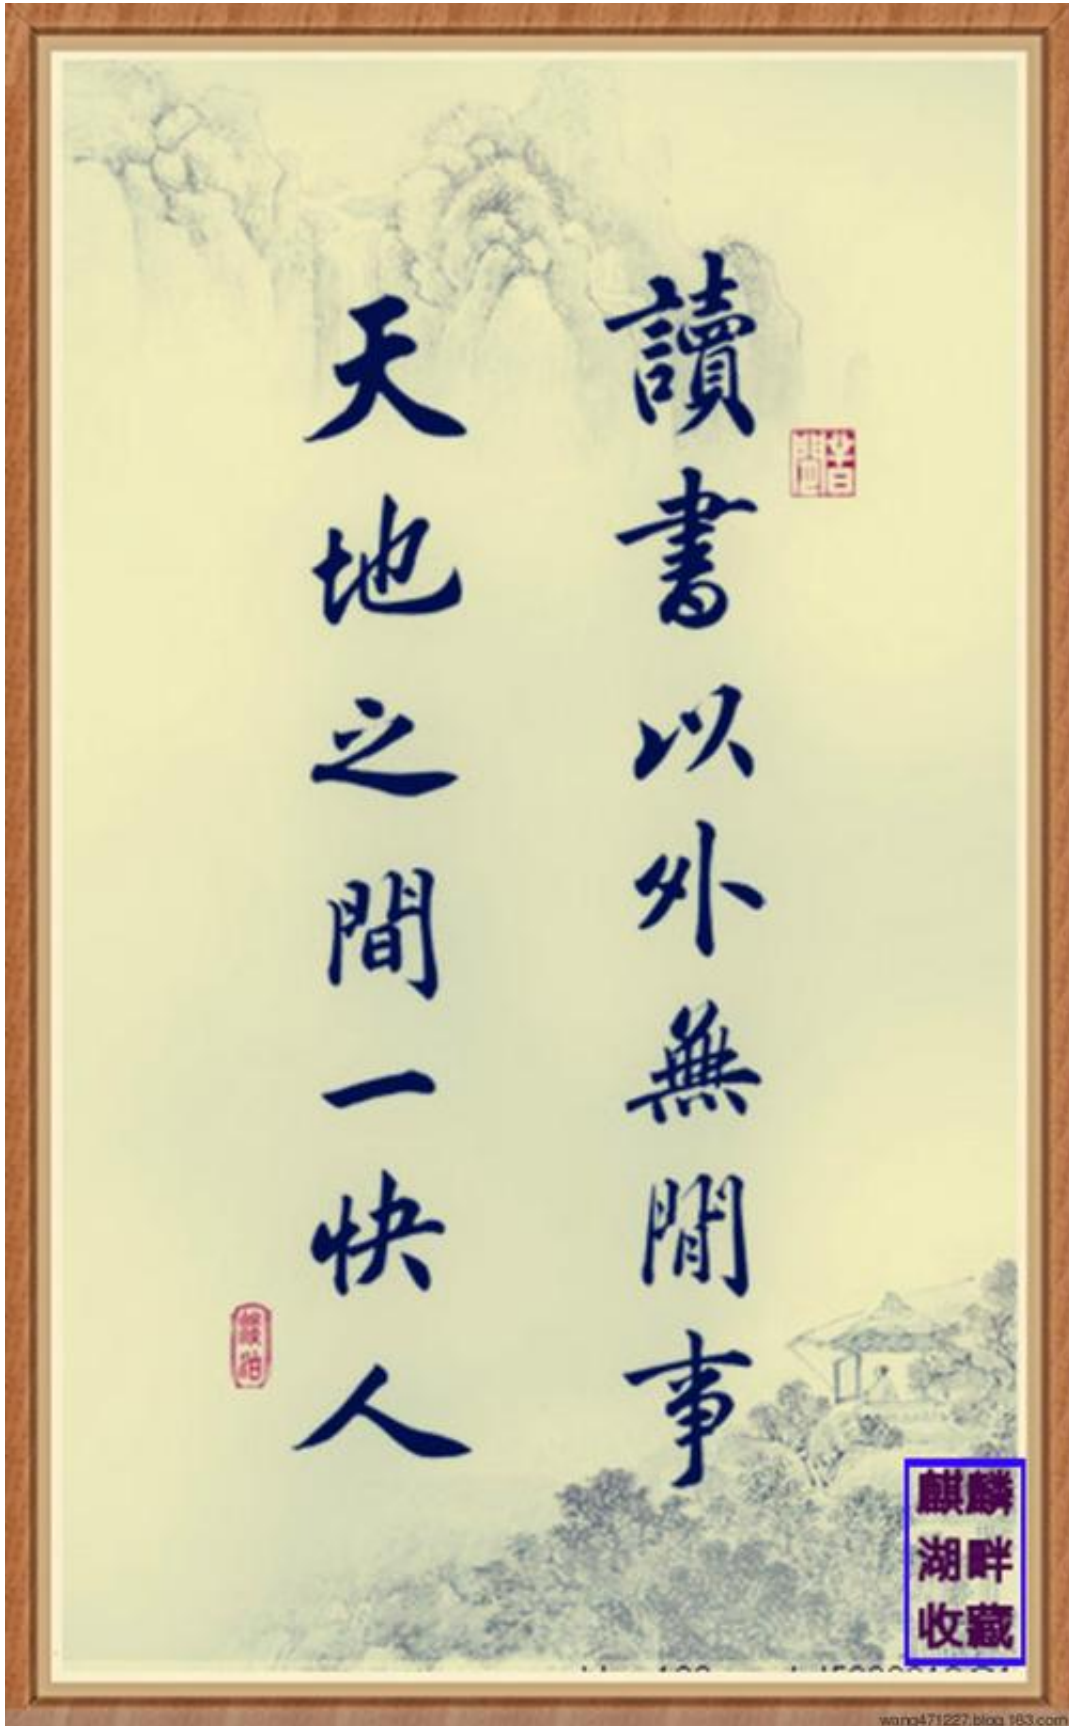 讀書以外無閒事
天地之間一快人
麒麟
湖畔
收藏
wang471227.blog.163.com